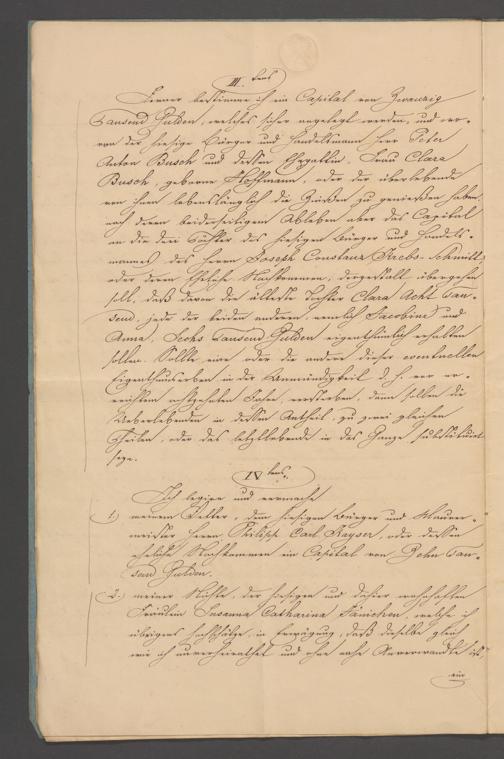 III.tens
Ferner bestimme ich ein Capital von Zwanzig
Tausend Gulden, welches sicher angelegt werden, und wo-
von der hiesige Bürger und Handelsmann Herr Peter
Anton Busch und dessen Ehegattin, Frau Clara
Busch, geborne Hoffmann, oder der überlebende
von ihnen lebenslänglich die Zinsen zu genießen haben,
nach deren beiderseitigem Ableben aber das Capital
an die drei Töchter des hiesigen Bürger und Handels-
mannes, des Herrn Joseph Constanz Krebs-Schmitt
oder deren eheliche Nachkommen, dergestalt übergehen
soll, daß davon die älteste Tochter Clara Acht Tau-
send, jede der beiden anderen, nemlich Jacobine und
Anna, Sechs Tausend Gulden eigenthümlich erhalten
sollen. Sollte eine oder die andere dieser eventuellen
Eigenthumserben in der Unmündigkeit d. h. vor er-
reichtem achtzehnten Jahre, versterben, dann sollen die
Ueberlebenden in dessen Antheil, zu zwei gleichen
Theilen, oder das letztlebende in das Ganze substituirt
seyn.
IV tens.
Ich legire und vermache
1.) meinem Vetter, dem hiesigen Bürger und Maurer-
meister Herrn Philipp Carl Kayser, oder dessen
eheliche Nachkommen ein Capital von Zehn Tau-
send Gulden.
2.) meiner Nichte, der hiesigen und dahier wohnhaften
Fräulein Susanna Catharina Jänichen, welche ich
übrigens hochschätze, in Erwägung, daß dieselbe gleich
wie ich unverheirathet und ohne nahe Anverwandte ist,
ein